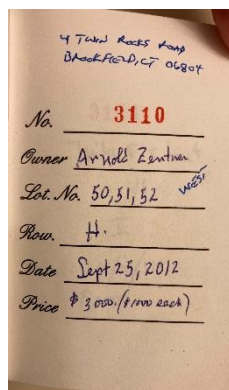 4 TWIN ROCKS ROAD
BROOKFIELD, CT 06804
No. 3110
Owner Arnold Zentner
Lot. No. 50, 51, 52 WEST
Row. H.
Date Sept 25, 2012
Price $3000. ($1000 each)